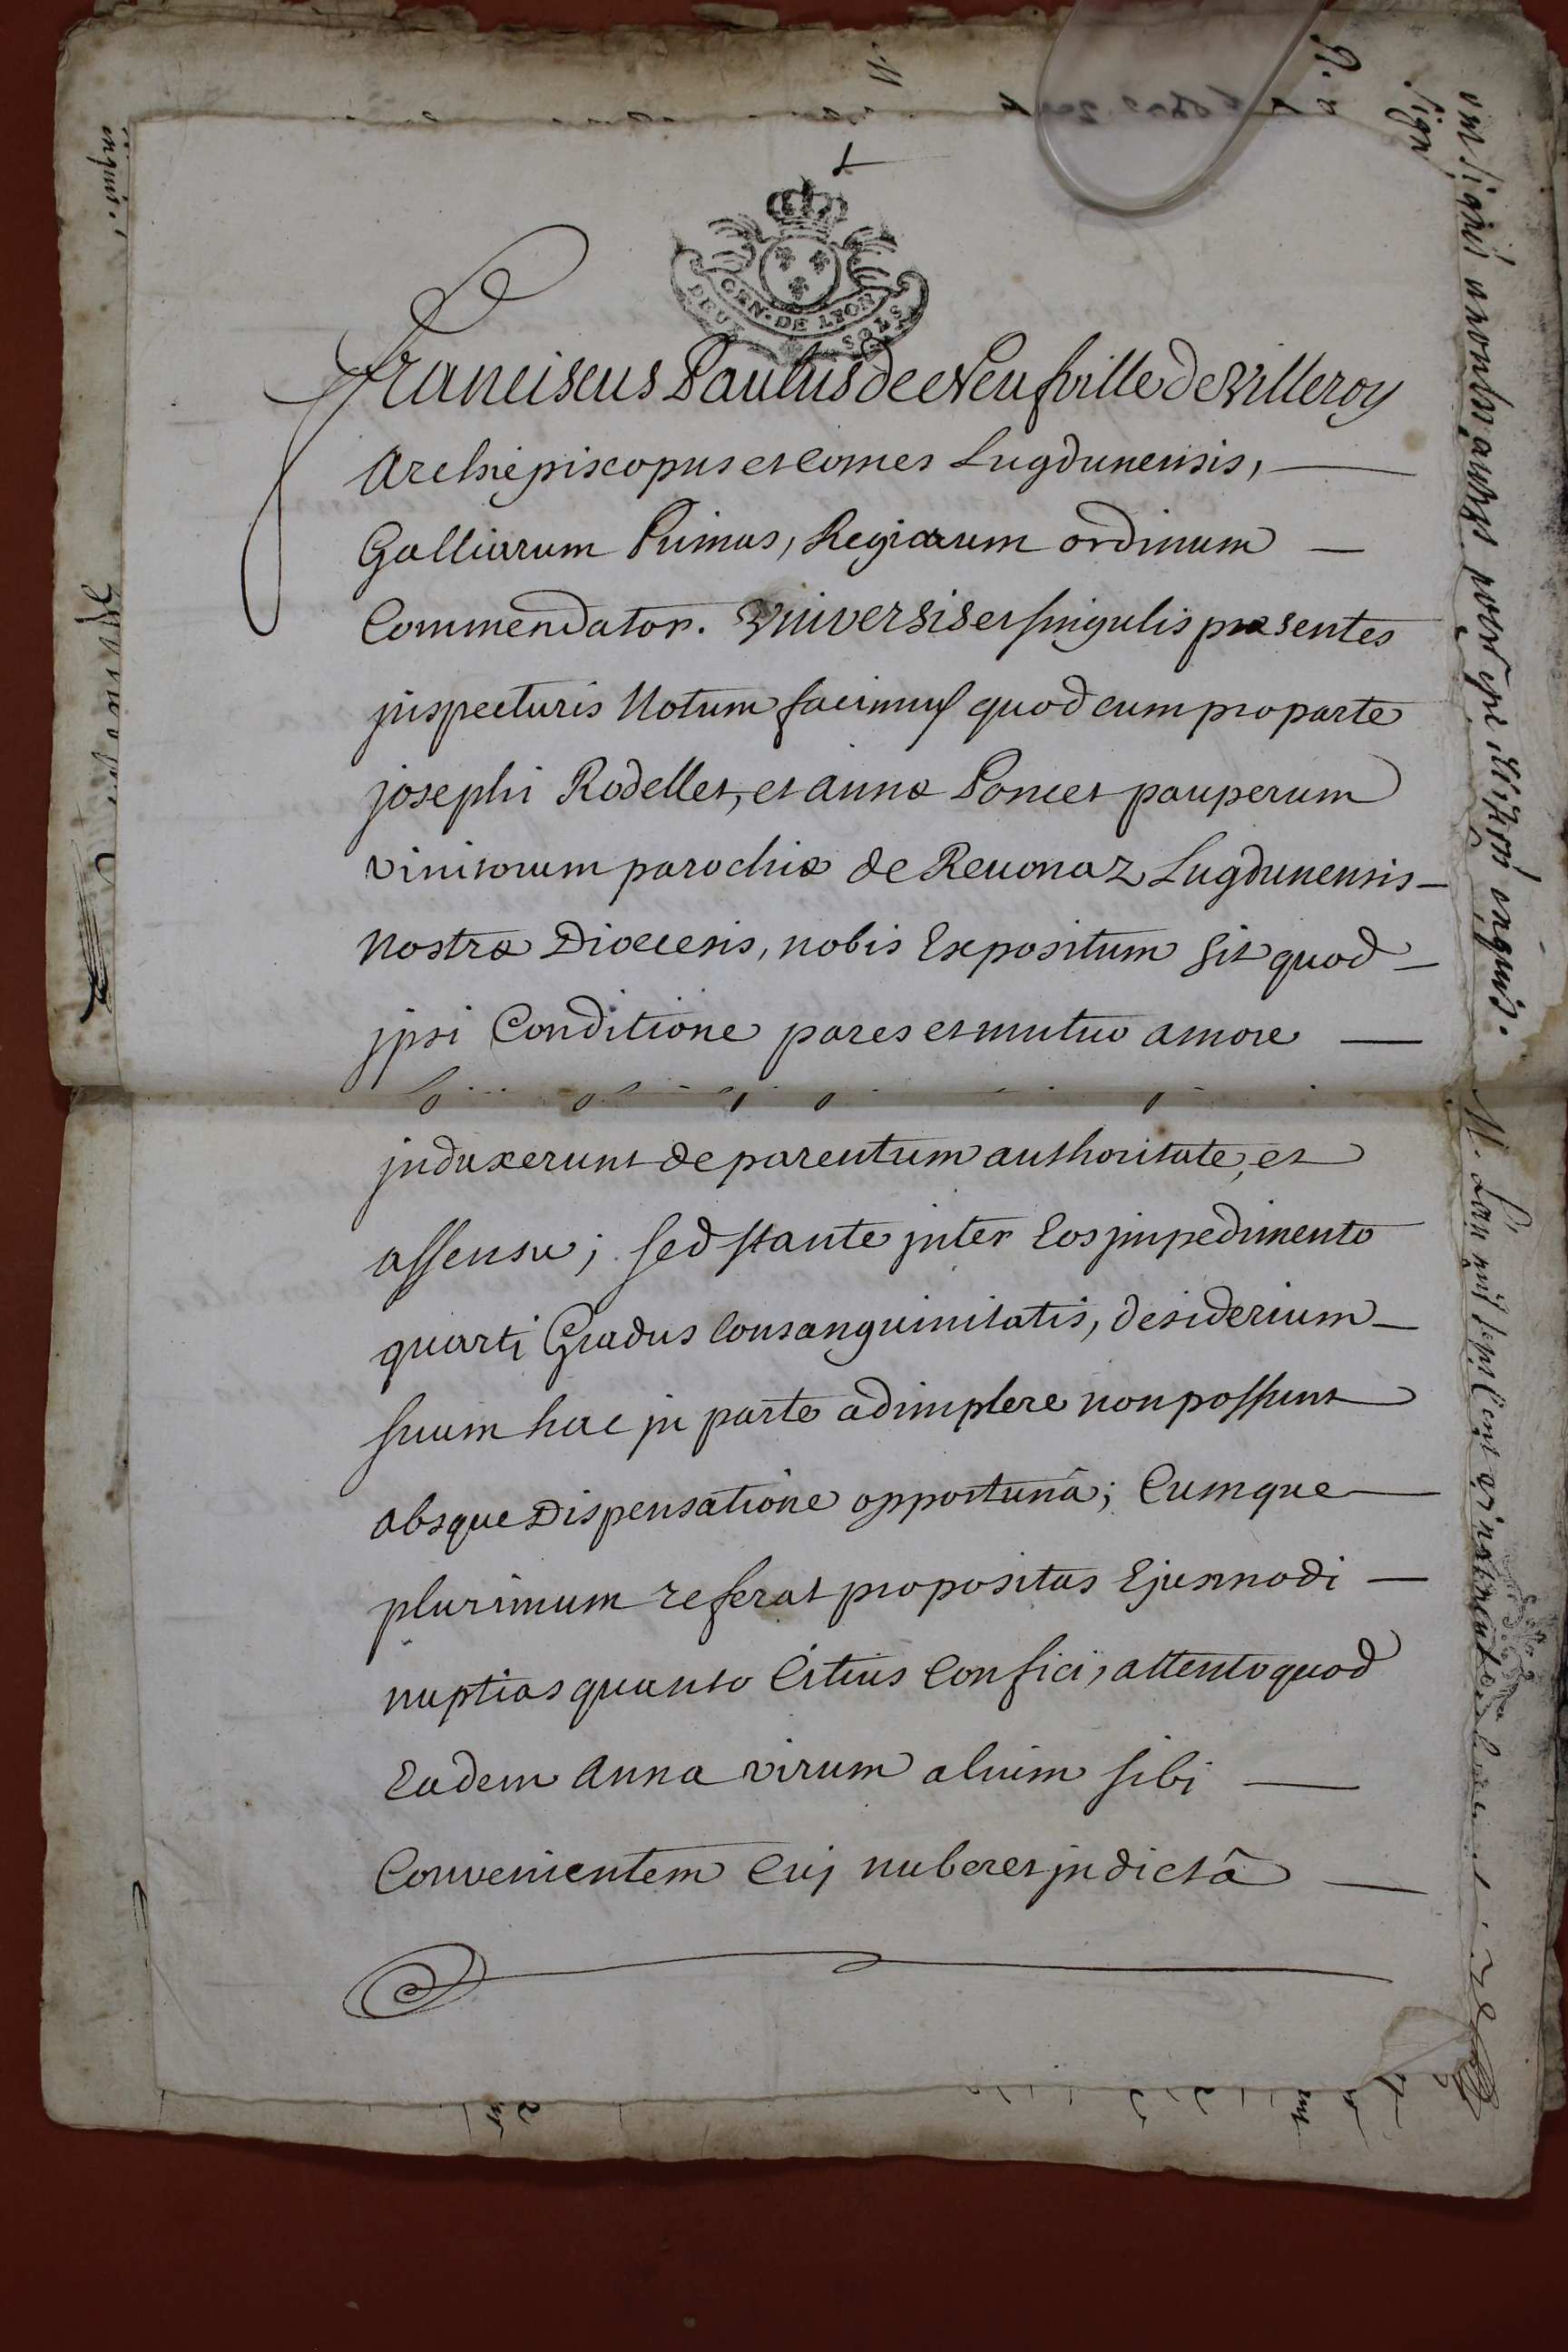 GEN. DE LYON
DEUX SOLS
Franciscus Paulus de Neufville de Villeroy
Archiepiscopus et Comes Lugdunensis,
Galliarum Primas, Regiorum ordinum
Commendator. Universis et singulis præsentes
jnspecturis Notum facimus quod cum pro parte
josephi Rodellet, et annæ Poncet pauperum
vinitorum parochiæ de Reuonaz Lugdunensis
nostræ Diœcesis, nobis Expositum sit quod
jpsi Conditione pares et mutuo amore
jnduxerunt de parentum authoritate, et
assensu; sed stante jnter Eos jmpedimento
quarti Gradus Consanguinitatis, desiderium
suum hac jn parte adimplere non possunt
absque Dispensatione opportunâ; Cumque
plurimum referat propositas Ejusmodi
nuptias quanto Citius Confici, attento quod
Eadem Anna virum alium sibi
Convenientem Cuj nuberet jn dictâ